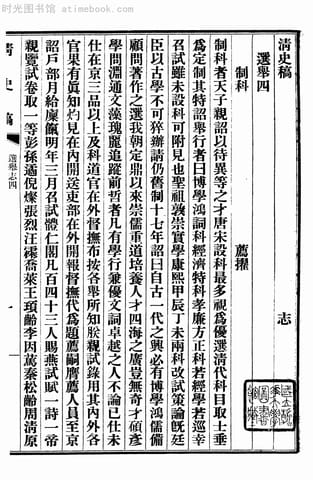 时光图书馆
atimebook.com
清史稿
志
選舉四
制科
薦擢
制科者天子親詔以待異等之才唐宋設科最多視爲優選清代科目取士垂
爲定制其特詔舉行者曰博學鴻詞科經濟特科孝廉方正科若經學若巡幸
召試雖未設科可附見也聖祖敦崇實學康熙甲辰丁未兩科改試策論旣廷
臣以古學不可猝辦請仍舊制十七年詔曰自古一代之興必有博學鴻儒備
顧問著作之選我朝定鼎以來崇儒重道培養人才四海之廣豈無奇才碩彥
學問淵通文藻瑰麗追蹤前哲者凡有學行兼優文詞卓越之人不論已仕未
仕在京三品以上及科道官在外督撫布按各舉所知朕親試錄用其內外各
官果有眞知灼見在內開送吏部在外開報督撫代爲題薦嗣膺薦人員至京
詔戶部月給廩餼明年三月召試體仁閣凡百四十三人賜燕試賦一詩一帝
親覽試卷取一等彭孫遹倪燦張烈汪霦喬萊王頊齡李因篤秦松齡周清原
清史稿
選舉志四
一